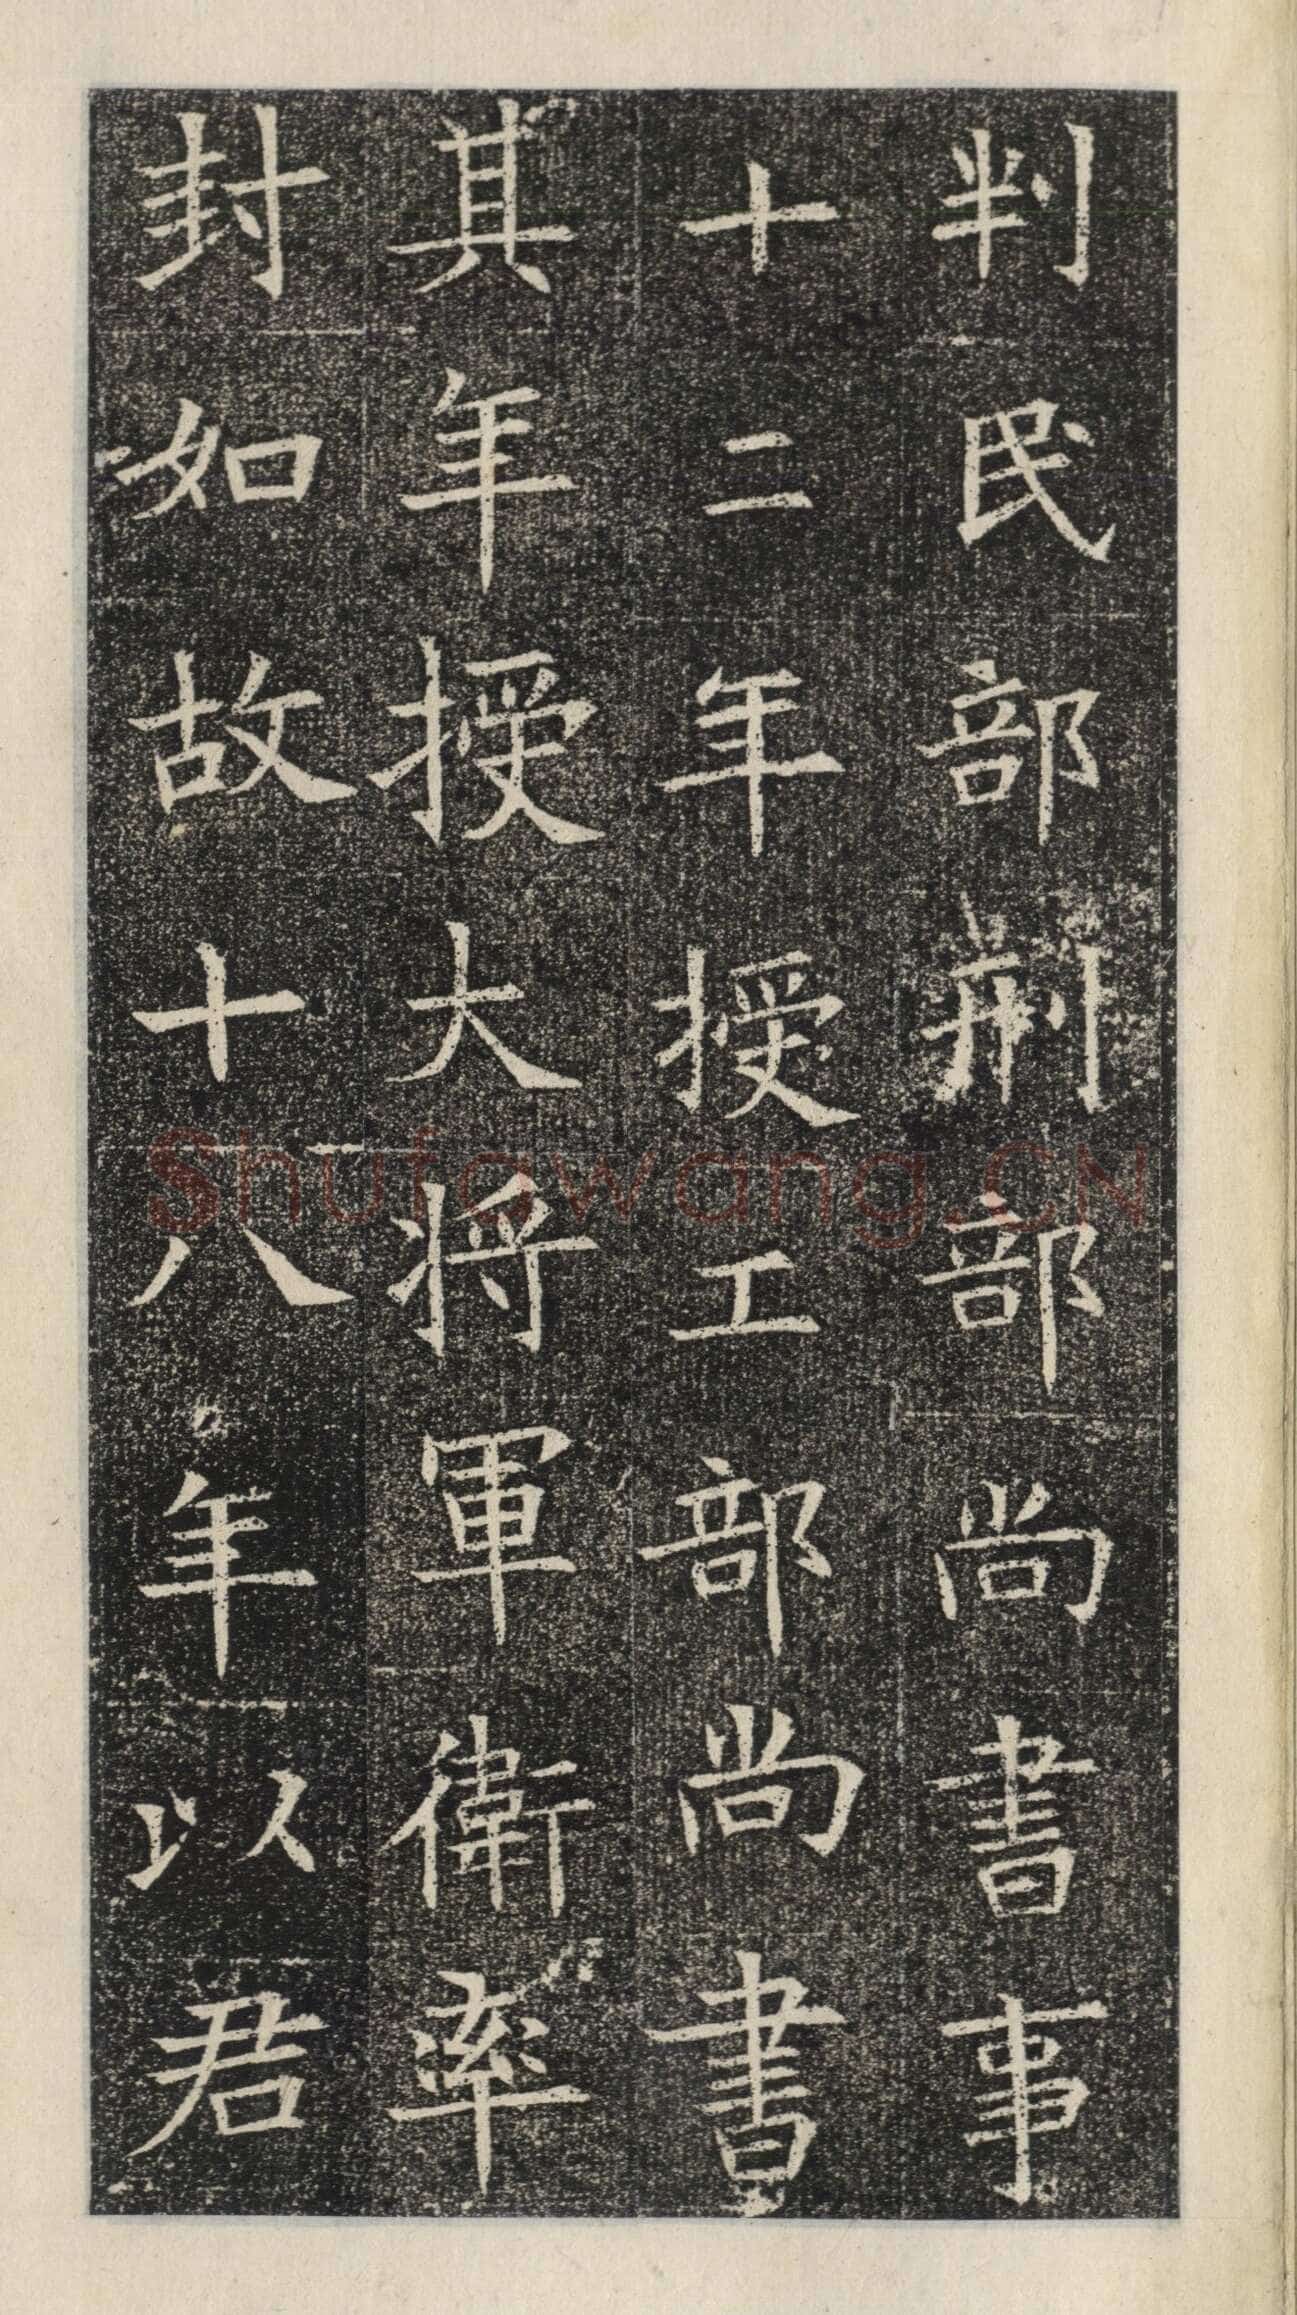 判民部刑部尚書事
十二年授工部尚書
其年授大将軍衛率
封如故十八年以君
Shufawang.CN